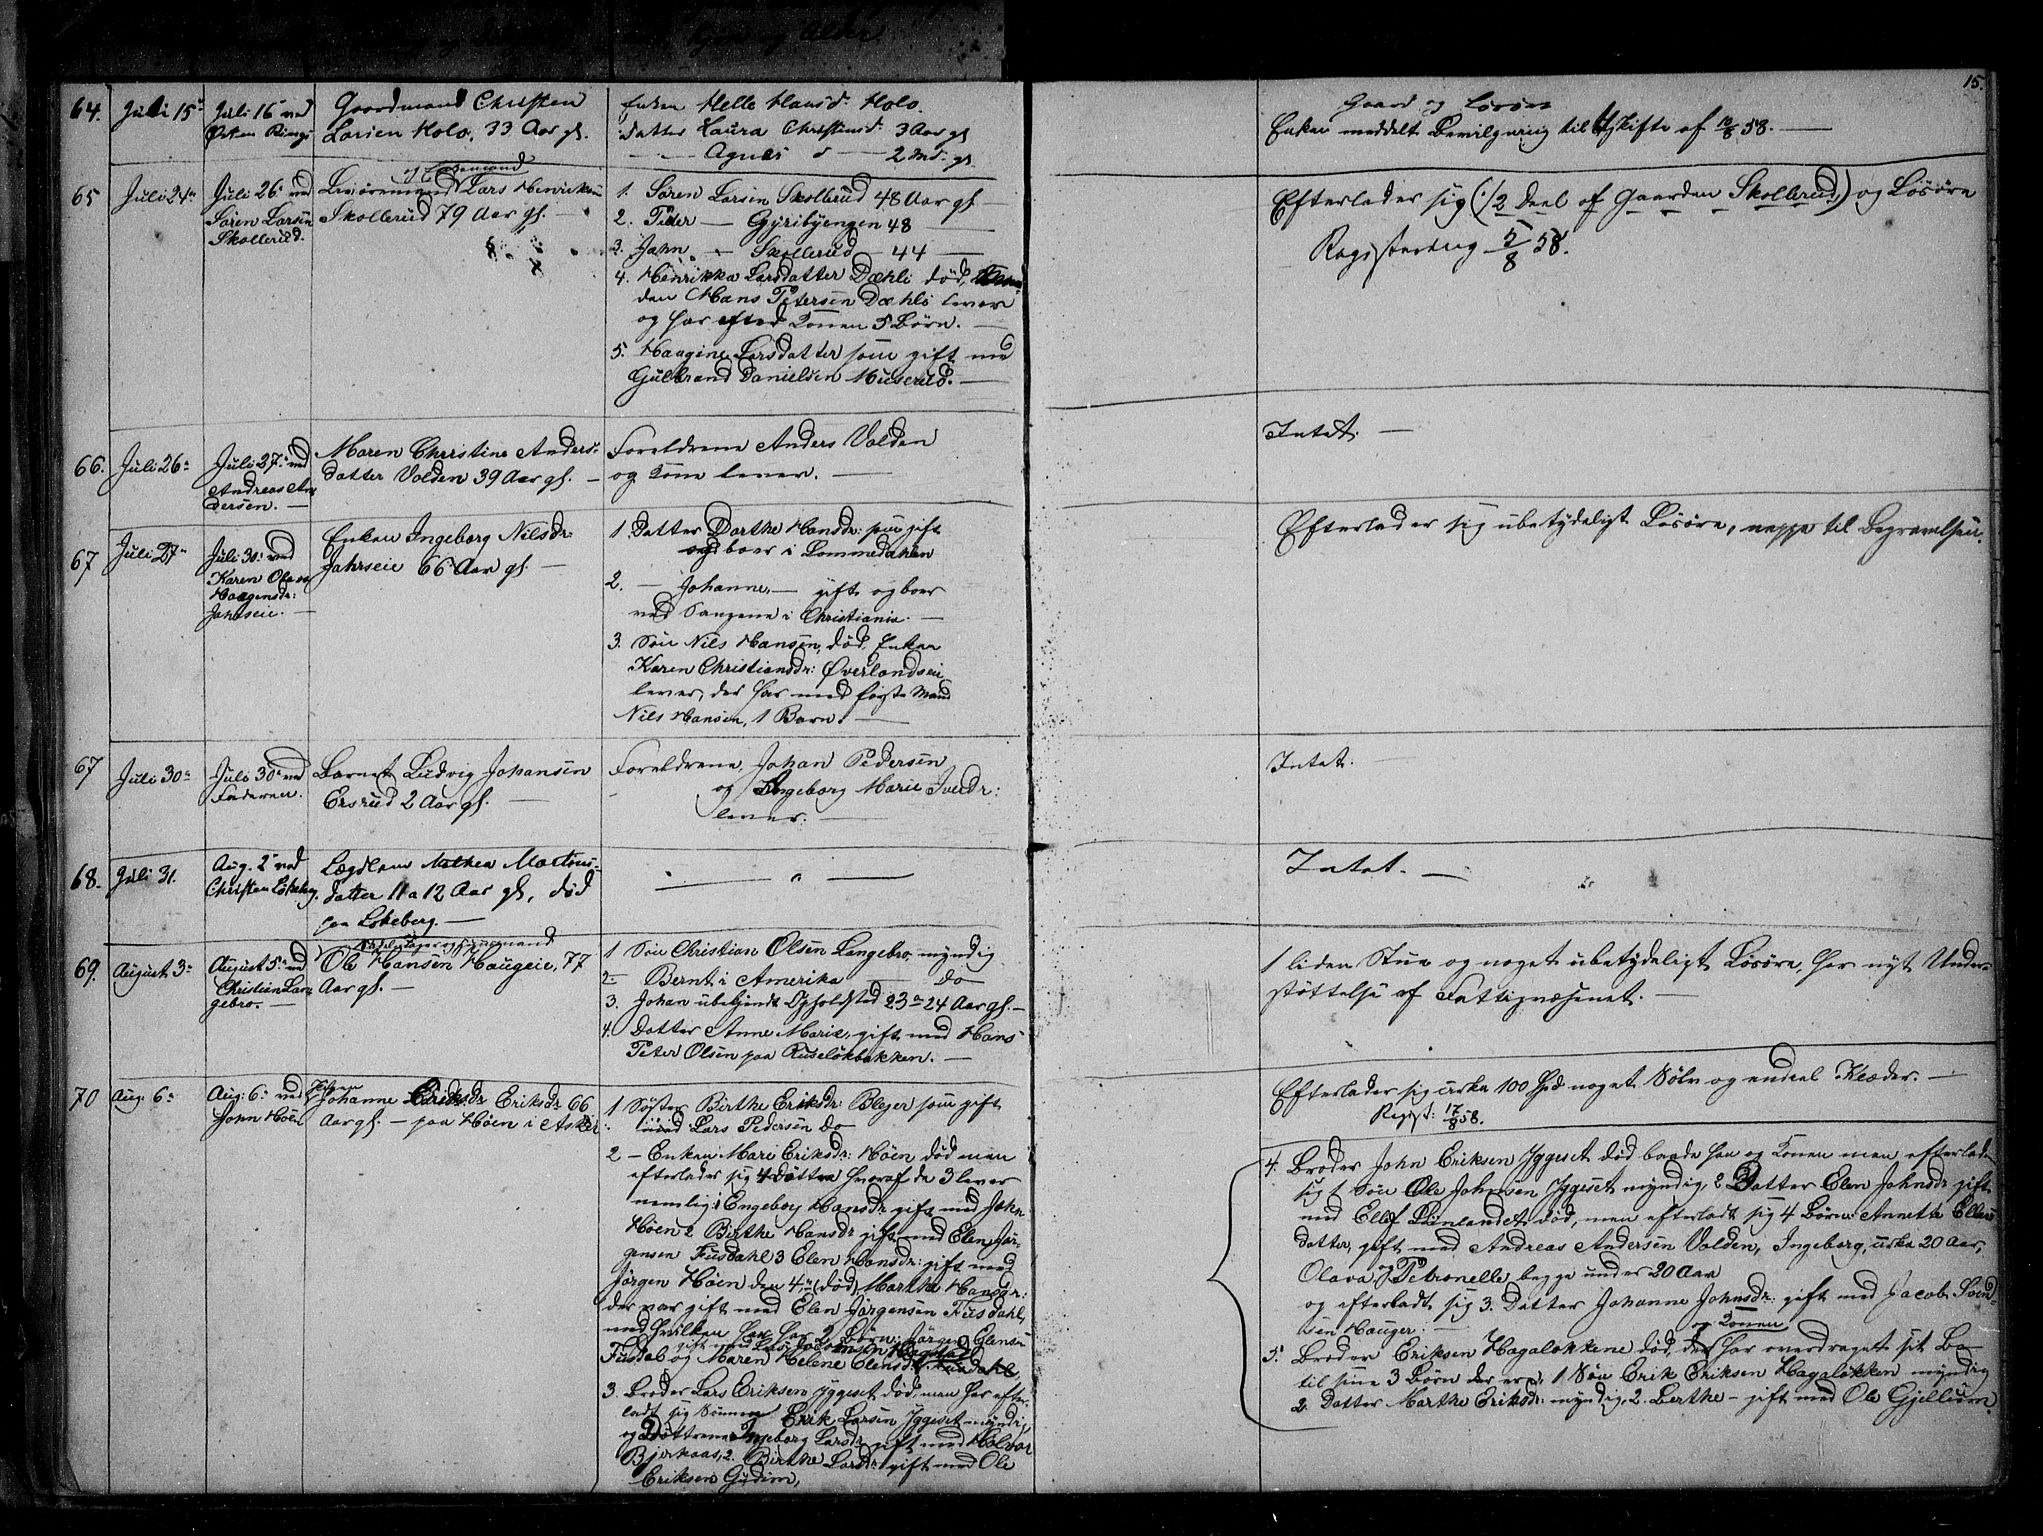 Gaard og Alder
15.
64. Juli 15de Juli 16 ved Gaardmand Christen Enken Helle Hansd. Holo. Gaard og Løsøre
Larsen Holo, 33 Aar gl. Datter Laura Christensd. 3 Aar gl Enken meddelt Bevilgning til Skifte af 12/8 58. —
— Agnes d — 2 Md. gl.
65 Juli 24de Juli 26 ved Søren Larsen Skollerud.
Lars Henriksen
Skollerud 79 Aar gl. —
1. Søren Larsen Skollerud 48 Aar gl —
2. Peder — Gyribyengen 48 —
3. John — Skollerud — 44 —
4. Henrikka Larsdatter Dæhli død,
den Hans Petersen Dæhli lever
og har efter Konen 5 Børn. —
5. Haagine Larsdatter som gift med
Gulbrand Danielsen Muserud. —
Efterlader sig (1/2 deel af Gaarden Skollerud) og Løsøre
Registrering 5/8 58.
66. Juli 26de Juli 27de ved
Andreas An
dersen. —
Maren Christine Anders-
datter Volden 39 Aar gl. —
Foreldrene Anders Volden
og Kone lever. —
Intet. —
67 Juli 27de Juli 30te ved
Karen Olava
Haagensdr:
Jahrseie. —
Enken Ingeborg Nilsdr:
Jahrseie 66 Aar gl. —
1. Datter Dorthe Hansdr: som gift
og boer i Lommedalen
2. — Johanne — gift og boer
ved Sangene i Christiania. —
3. Søn Nils Hansen, død, Enken
Karen Christiansdr: Øverlandseie
lever, der har med første Mand
Nils Hansen, 1 Barn. —
Efterlader sig ubetydeligt Løsøre, neppe til Begravelsen.
67 Juli 30te Juli 30te ved
Faderen.
Barnet Ludvig Johansen
Ersrud 2 Aar gl. —
Foreldrene, Johan Pedersen
og Ingeborg Marie Iversdr:
lever. —
Intet. —
68. Juli 31. Aug. 2 ved
Christen Løkeberg.
Lægdslem Mathea Martins-
datter 11 a 12 Aar gl, død
paa Løkeberg. —
— " —
Intet. —
69. August 3de August 5te ved
Christian Lan
gebro. —
Ole Hansen Haugeie, 77
Aar gl. —
1 Søn Christian Olsen Langebro, myndig
2 — Bernt i Amerika — do —
3. Johan ubekjendt Opholdsted 23 a 24 Aar gl. —
4. Datter Anne Marie, gift med Hans
Peter Olsen paa Ruseløkbakken. —
1 liden Stue og noget ubetydeligt Løsøre, har nyt Under-
støttelse af Fattigvæsenet. —
70 Aug: 6te Aug: 6te ved
John Høen
Johanne Eriksdr 66
Aar gl. — paa Høen i Asker
1 Søster Birthe Eriksdr: Blejer som gift
med Lars Pedersen do —
2 — Enken Mari Eriksdr: Høen død men
efterlader sig 4 Døttre hvoraf de 3 lever
nemlig: 1 Engeborg Hansdr gift med John
Høen 2 Birthe Hansdr gift med Elen Jør-
gensen Fusdahl 3 Elen Hansdr: gift med
Jørgen Høen den 4de (død) Marthe Hansdr:
der var gift med Elen Jørgensen Fusdahl,
med hvilken han har 2 Børn: Jørgen Elensen
Fusdal og Maren Helene Elensdr. Fusdahl
3. Broder Lars Eriksen Jggeset død, men har efter-
ladt sig Sønnen Erik Larsen Jggeset myndig,
og Døttrene Ingeborg Larsdr gift med Halvor
Bjerkaas, 2. Birthe Larsdr: gift med Ole
Eriksen Gudim,
Efterlader sig cirka 100 Spd noget Sølv og endeel Klæder. —
Regist: 17/8 58.
4. Broder John Eriksen Jggeset død baade han og Konen men efterlader
sig 1 Søn Ole Johnsen Jggeset myndig, 2 Datter Elen Johnsdr gift
med Ellef død, men efterladt sig 4 Børn: Annette Ellefs
datter, gift med Andreas Andersen Volden, Ingeborg, cirka 20 Aar,
Olava og Petronelle, begge under 20 Aar
og efterladt sig 3. Datter Johanne Johnsdr: gift med Jacob Svend-
sen Hauger. —
og Konen
5. Broder Eriksen Hagaløkkene død, der har overdraget sit Bo
til sine 3 Børn der er, 1 Søn Erik Eriksen Hagaløkken myndig
2. Datter Marthe Eriksdr: myndig, 2. Berthe — gift med Ole Gjellum.